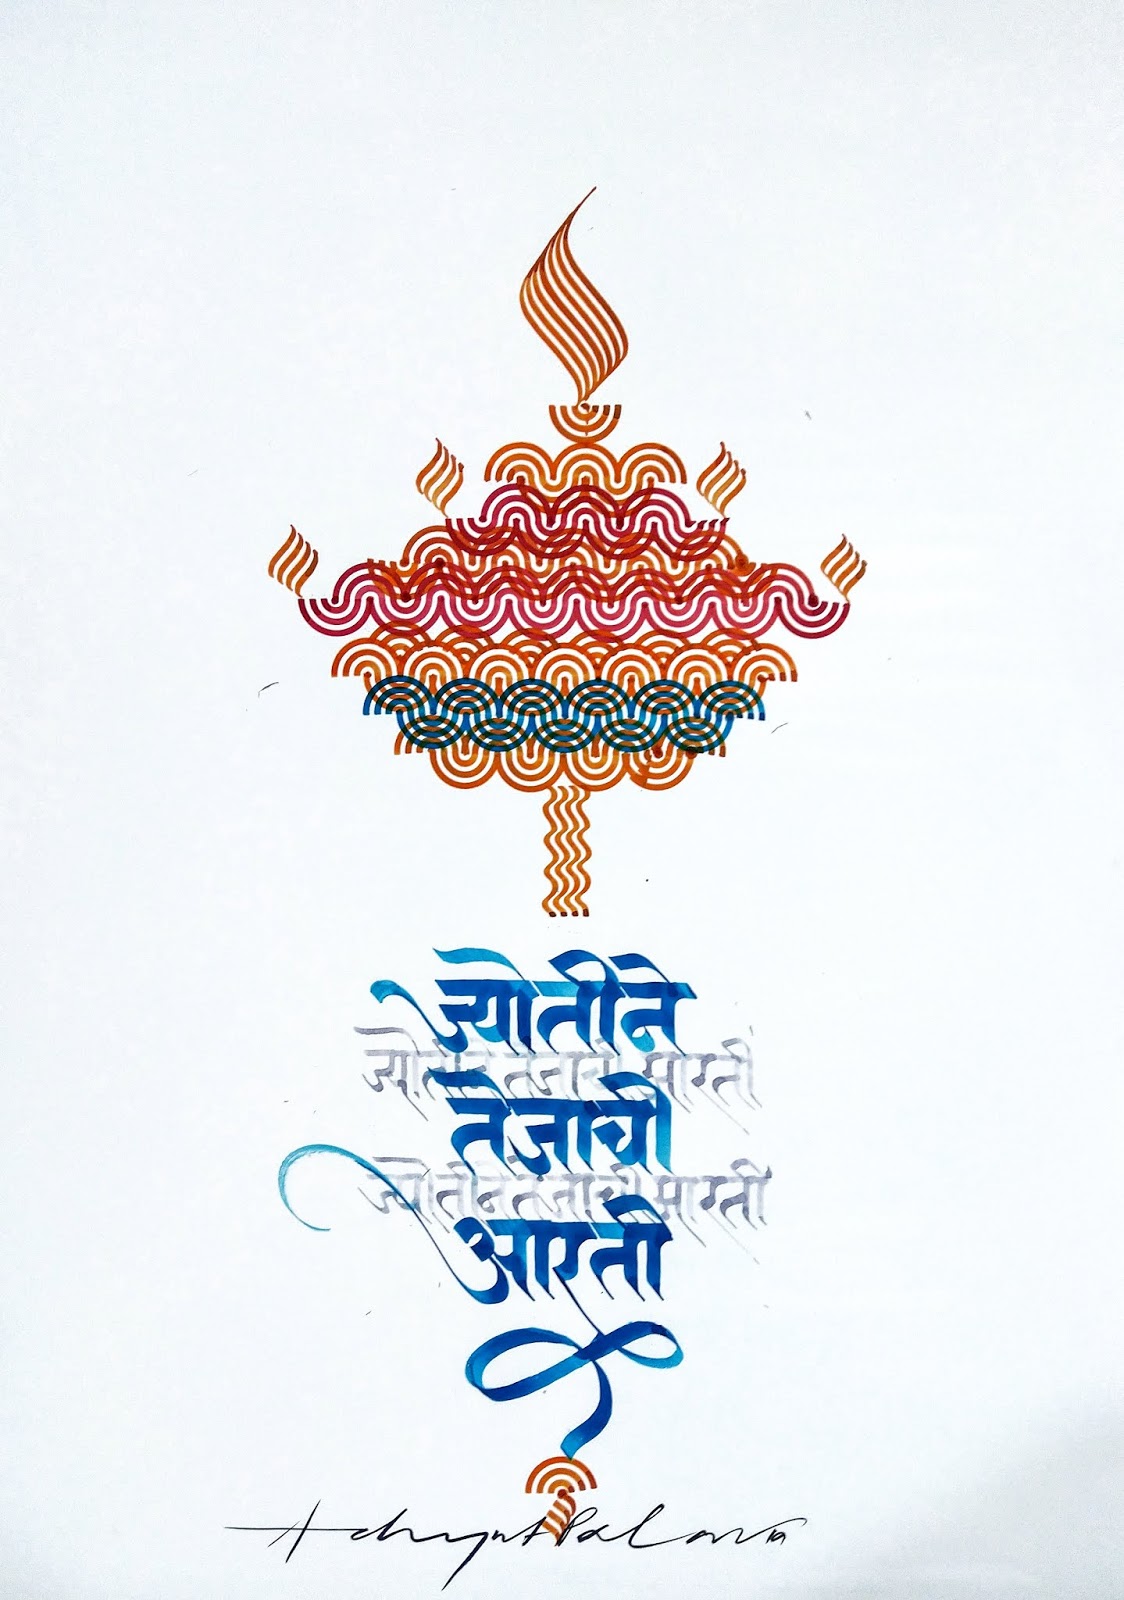 ज्योतीने
ज्योतीने तेजाची आरती
तेजाची
ज्योतीने तेजाची आरती
आरती
Achyut Palav 19